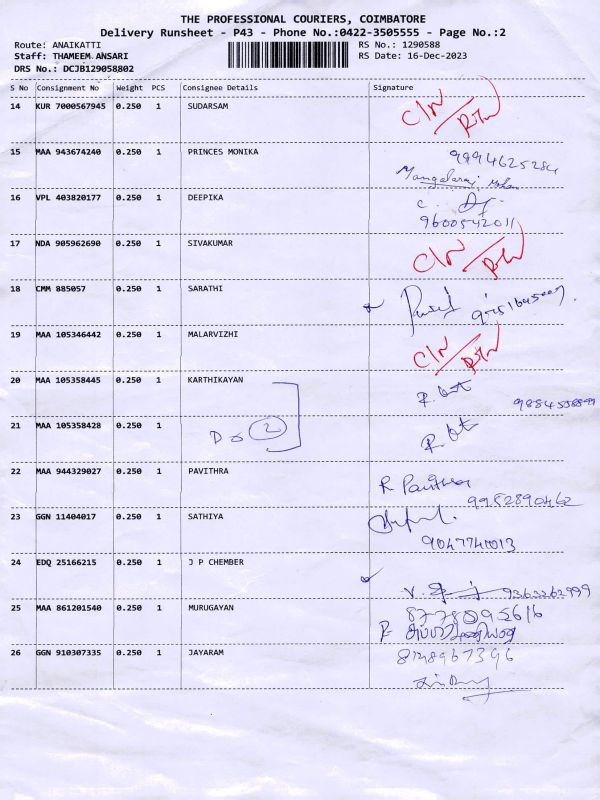 THE PROFESSIONAL COURIERS, COIMBATORE
Delivery Runsheet - P43 - Phone No.:0422-3505555 - Page No.:2
Route: ANAIKATTI RS No.: 1290588
Staff: THAMEEM ANSARI RS Date: 16-Dec-2023
DRS No.: DCJB129058802
S No Consignment No Weight PCS Consignee Details Signature
14 KUR 7000567945 0.250 1 SUDARSAM C/N RTN
15 MAA 943674240 0.250 1 PRINCES MONIKA 9994625284
Mangalaraj
16 VPL 403820177 0.250 1 DEEPIKA
9600542011
17 NDA 905962690 0.250 1 SIVAKUMAR C/N RTN
18 CMM 885057 0.250 1 SARATHI
19 MAA 105346442 0.250 1 MALARVIZHI C/N RTN
20 MAA 105358445 0.250 1 KARTHIKAYAN
21 MAA 105358428 0.250 1
2
22 MAA 944329027 0.250 1 PAVITHRA R Pavithra
9952890462
23 GGN 11404017 0.250 1 SATHIYA
9047741013
24 EDQ 25166215 0.250 1 J P CHEMBER
9363262999
25 MAA 861201540 0.250 1 MURUGAYAN 8778095616
26 GGN 910307335 0.250 1 JAYARAM 8148967396